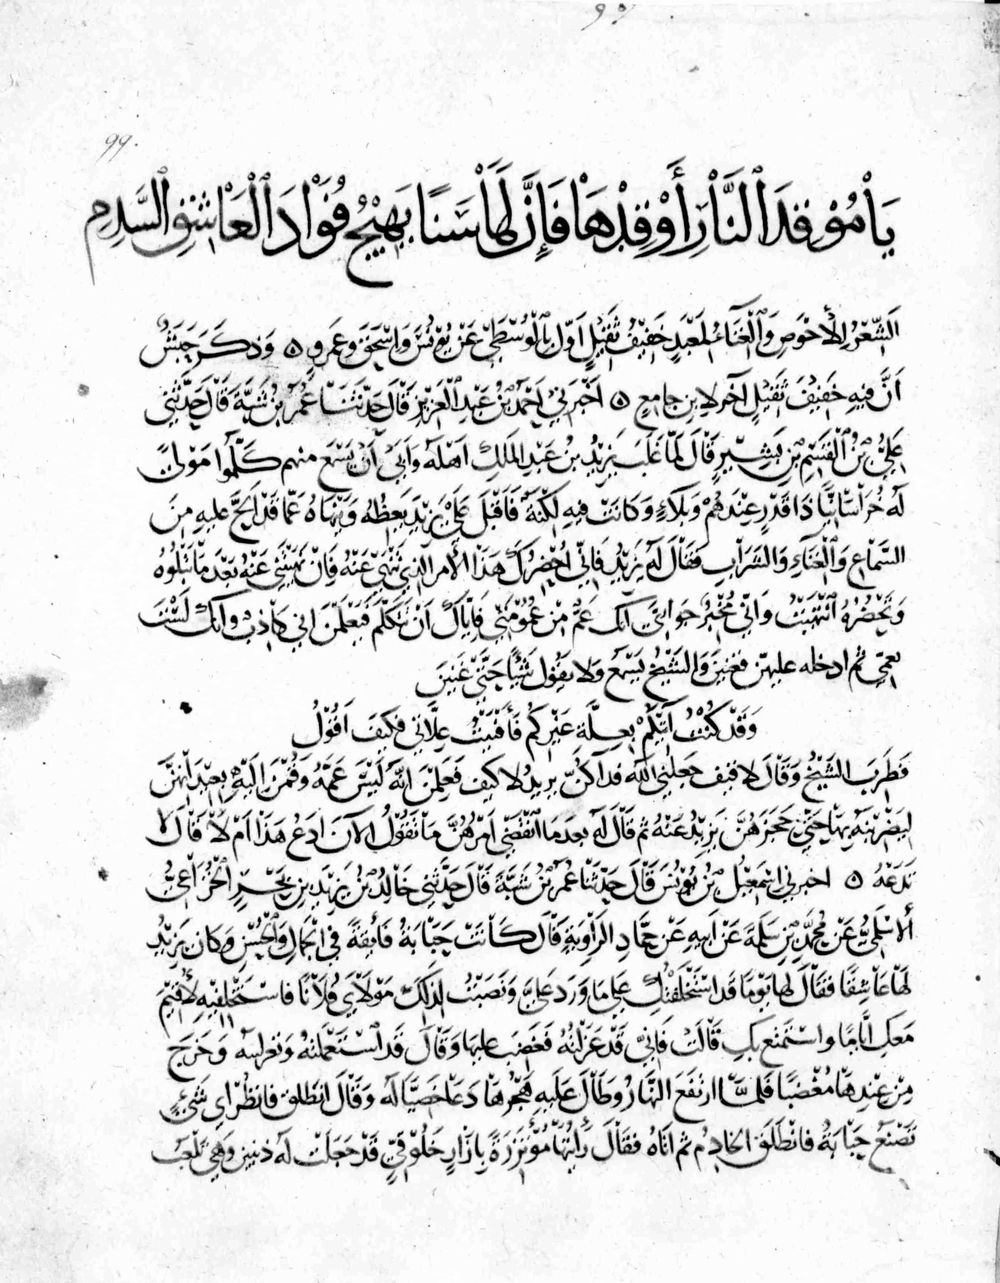 99
99.
يَا مُوقِدَ النَّارِ أَوْقِدْهَا فَإِنَّ لَهَا سَنًا يَهِيجُ فُؤَادَ الْعَاشِقِ السَّدِمِ
الشِّعْرُ لِلأَحْوَصِ وَالْغِنَاءُ لِمَعْبَدٍ خَفِيفُ ثَقِيلٍ أَوَّل بِالْوُسْطَى عَنْ يُونُسَ وَإِسْحَقَ وَعَمْرٍو ٥ وَذَكَرَ حَبَشُ
أَنَّ فِيهِ خَفِيفَ ثَقِيلٍ آخَر لابنِ جامِعٍ ٥ أَخْبَرَنِي أَحْمَدُ بْنُ عَبْدِ الْعَزِيزِ قَالَ حَدَّثَنَا عُمَرُ بْنُ شَبَّةَ قَالَ حَدَّثَنِي
عَلِيُّ بْنُ الْقَسِمِ بْنِ بَشِيرٍ قَالَ لَمَّا غَلَبَ يَزِيدُ بْنُ عَبْدِ الْمَلِكِ أَهْلَهُ وَأَبَى أَنْ يَسْمَعَ مِنْهم كَلَّمُوا مَوْلىً
لَهُ خُرَاسَانِيًّا ذَا قَدْرٍ عِنْدَهُمْ وَبَلَاءٍ وَكَانَتْ فِيهِ لُكْنَةٌ فَأَقْبَلَ عَلَى يَزِيدَ يَعِظُهُ وَيَنْهَاهُ عَمَّا قَدْ أَلَحَّ عليهِ مِنَ
السَّمَاعِ وَالْغِنَاءِ وَالشَّرَابِ فَقَالَ لَهُ يَزِيدُ فَإِنِّي أُحْضِرُكَ هَذَا الأَمْرَ الَّذِي تَنْهَى عَنْهُ فَإِنْ نَهَيْتَنِي عَنْهُ بَعْدَ مَا تَبْلُوهُ
وَتَحْضُرُهُ انْتَهَيْتُ وَإِنِّي مُخْبِرٌ جَوَارِيَّ أَنَّكَ عَمٌّ مِنْ عُمُومَتِي فَإِيَّاكَ أَنْ تَتَكَلَّمَ فَيَعْلَمْنَ أَنِّي كَاذِبٌ وَأَنَّكَ لَسْتَ
بعمِّي ثُمَّ ادخله عليهنّ فَغَنَّيْنَ وَالشَّيْخُ يَسْمَعُ وَلا يَقُولُ شَيْئًا حَتَّى غَنَّيْنَ
وَقَدْ كُنْتُ آتِيكُمْ بِعِلَّةِ غَيْرِكُمْ فَأَفْنَيْتُ عِلَّاتِي فَكَيْفَ أَقُولُ
فَطَرِبَ الشَّيْخُ وَقَالَ لا قيف جَعَلَنِي اللَّهُ فداكُنَّ يريدُ لا كيف فَعَلِمْنَ أَنَّهُ لَيْسَ عَمَّهُ وَقُمْنَ إِلَيْهِ بِعِيدَانِهِنَّ
لِيَضْرِبْنَهُ بِهَا حَتَّى حَجَزَهُنَّ يَزِيدُ عَنْهُ ثم قَالَ لَهُ بعدما انْقَضَى أَمْرُهُنَّ مَا تَقُولُ الآنَ أَدَعُ هَذَا أَمْ لَا قَالَ لا
تَدَعْهُ ٥ اخبرني اسْمَعِيلُ بْنُ يُونُسَ قَالَ حَدَّثَنَا عُمَرُ بْنُ شَبَّةَ قَالَ حَدَّثَنِي خَالِدُ بْنُ يَزِيدَ بنِ بَحْرٍ الْخُزَاعِيُّ
الأَسْلَمِيُّ عَنْ مُحَمَّدِ بْنِ سَلَمَةَ عَنْ أَبِيهِ عَنْ حَمَّادٍ الرَّاوِيَةِ قَالَ كَانَتْ حَبَابَةُ فَائِقَةً فِي الْجَمَالِ وَالْحُسْنِ وَكَانَ يَزِيدُ
لَهَا عَاشِقًا فَقَالَ لَهَا يَوْمًا قَدِ اسْتَخْلَفْتُكِ عَلَى مَا وَرَدَ عَلَيَّ وَنَصَبْتُ لِذَلِكَ مَوْلَايَ فُلَانًا فَاسْتَخْلِفِيهِ لأُقِيمَ
مَعَكِ أَيَّامًا وَاسْتَمْتِعَ بِكِ قَالَتْ فَإِنِّي قَدْ عَزَلْتُهُ فَغَضِبَ عليها وَقَالَ قَدِ اسْتَعْمَلْتُهُ وَتَعْزِلِينَهُ وَخَرَجَ
مِنْ عِنْدِهَا مُغْضَبًا فَلَمَّا ارْتَفَعَ النَّهَارُ وَطَالَ عَلَيهِ هَجْرُهَا دَعَا خَصِيًّا لَهُ وَقَالَ انْطَلِقْ فَانْظُرْ أي شَيْءٍ
تَصْنَعُ حَبَابَةُ فَانْطَلَقَ الخَادِمُ ثُم أَتَاهُ فَقَالَ رَأَيْتُهَا مُؤْتَزِرَةً بِإِزَارٍ خَلُوقِيٍّ قَدْ جَعَلَتْ لَهُ ذَنَبَيْنِ وَهِيَ تَلْعَبُ